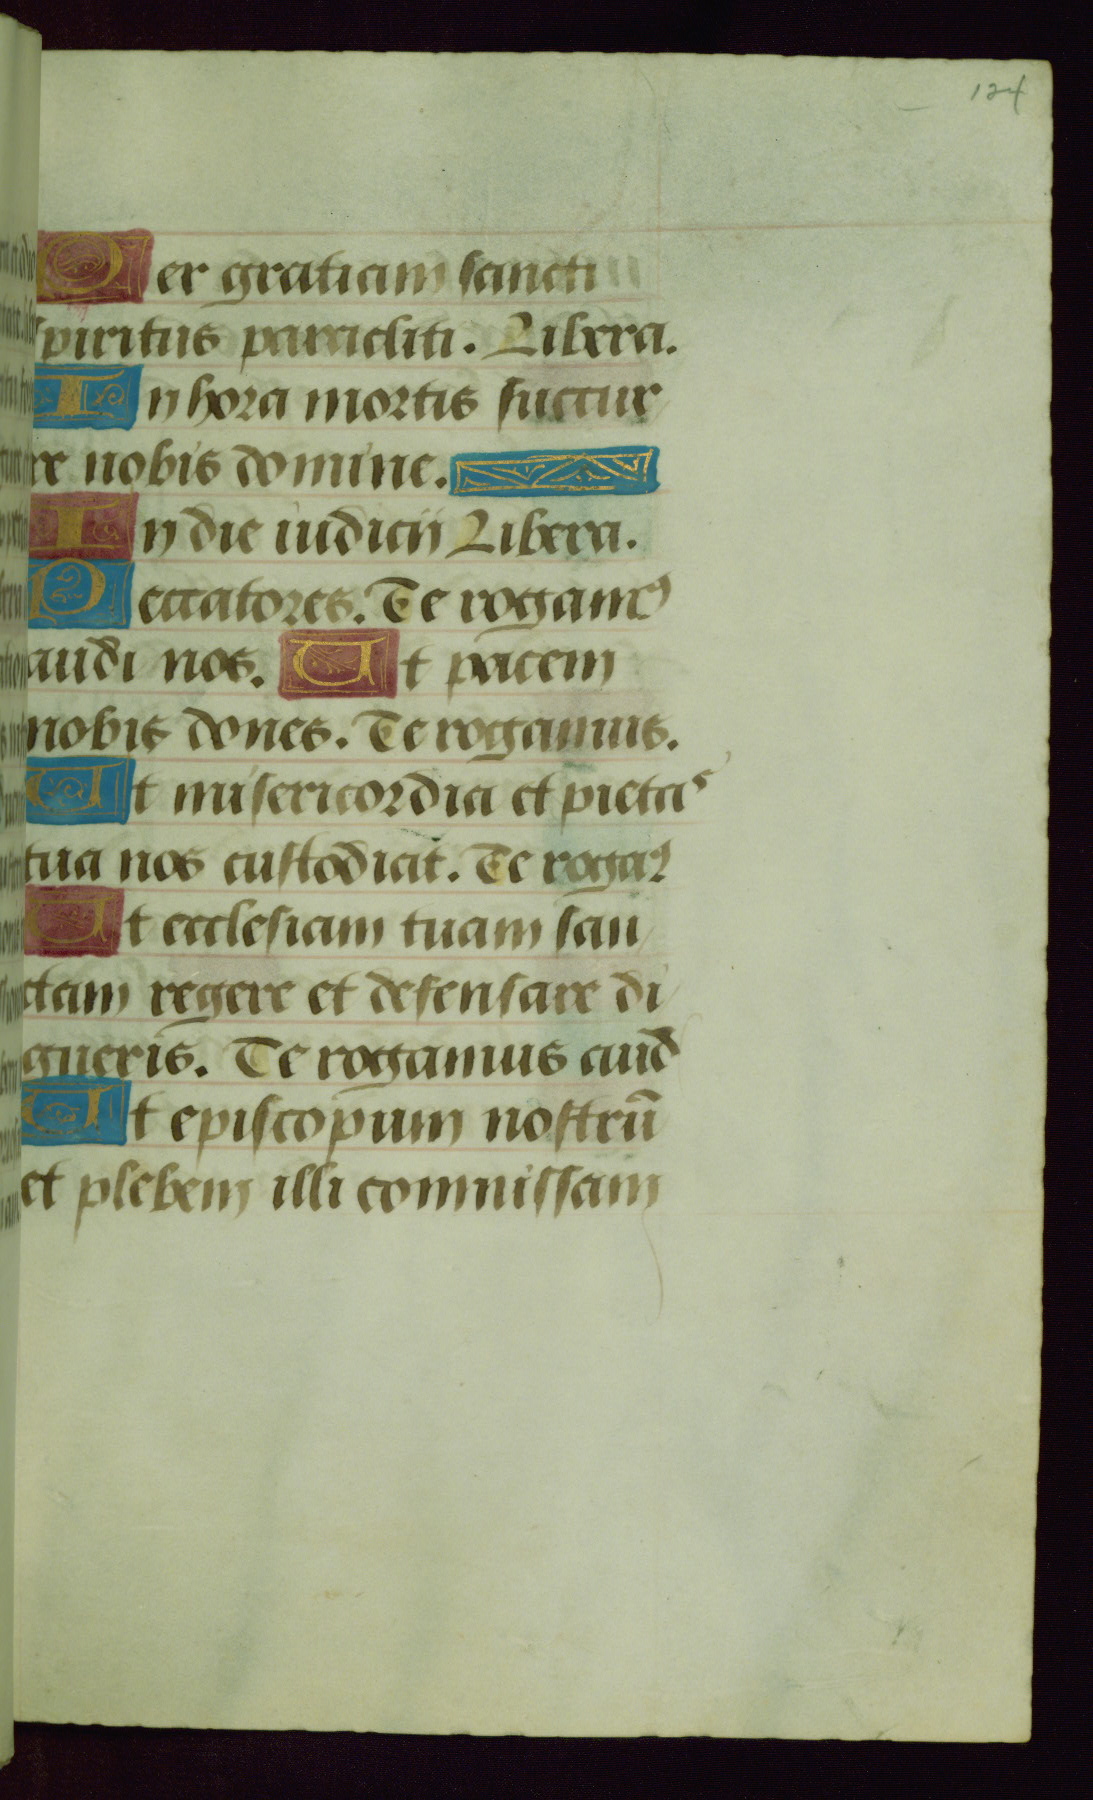 124
Per gratiam sancti
spiritus paracliti. Libera.
In hora mortis succur
re nobis domine.
In die iudicii Libera.
Peccatores. Te rogamꝰ
audi nos. Ut pacem
nobis dones. Te rogamus.
Ut misericordia et pietas
tua nos custodiat. Te rogaꝰ
Ut ecclesiam tuam san
ctam regere et defensare di
gneris. Te rogamus aud
Ut episcopum nostrū
et plebem illi commissam